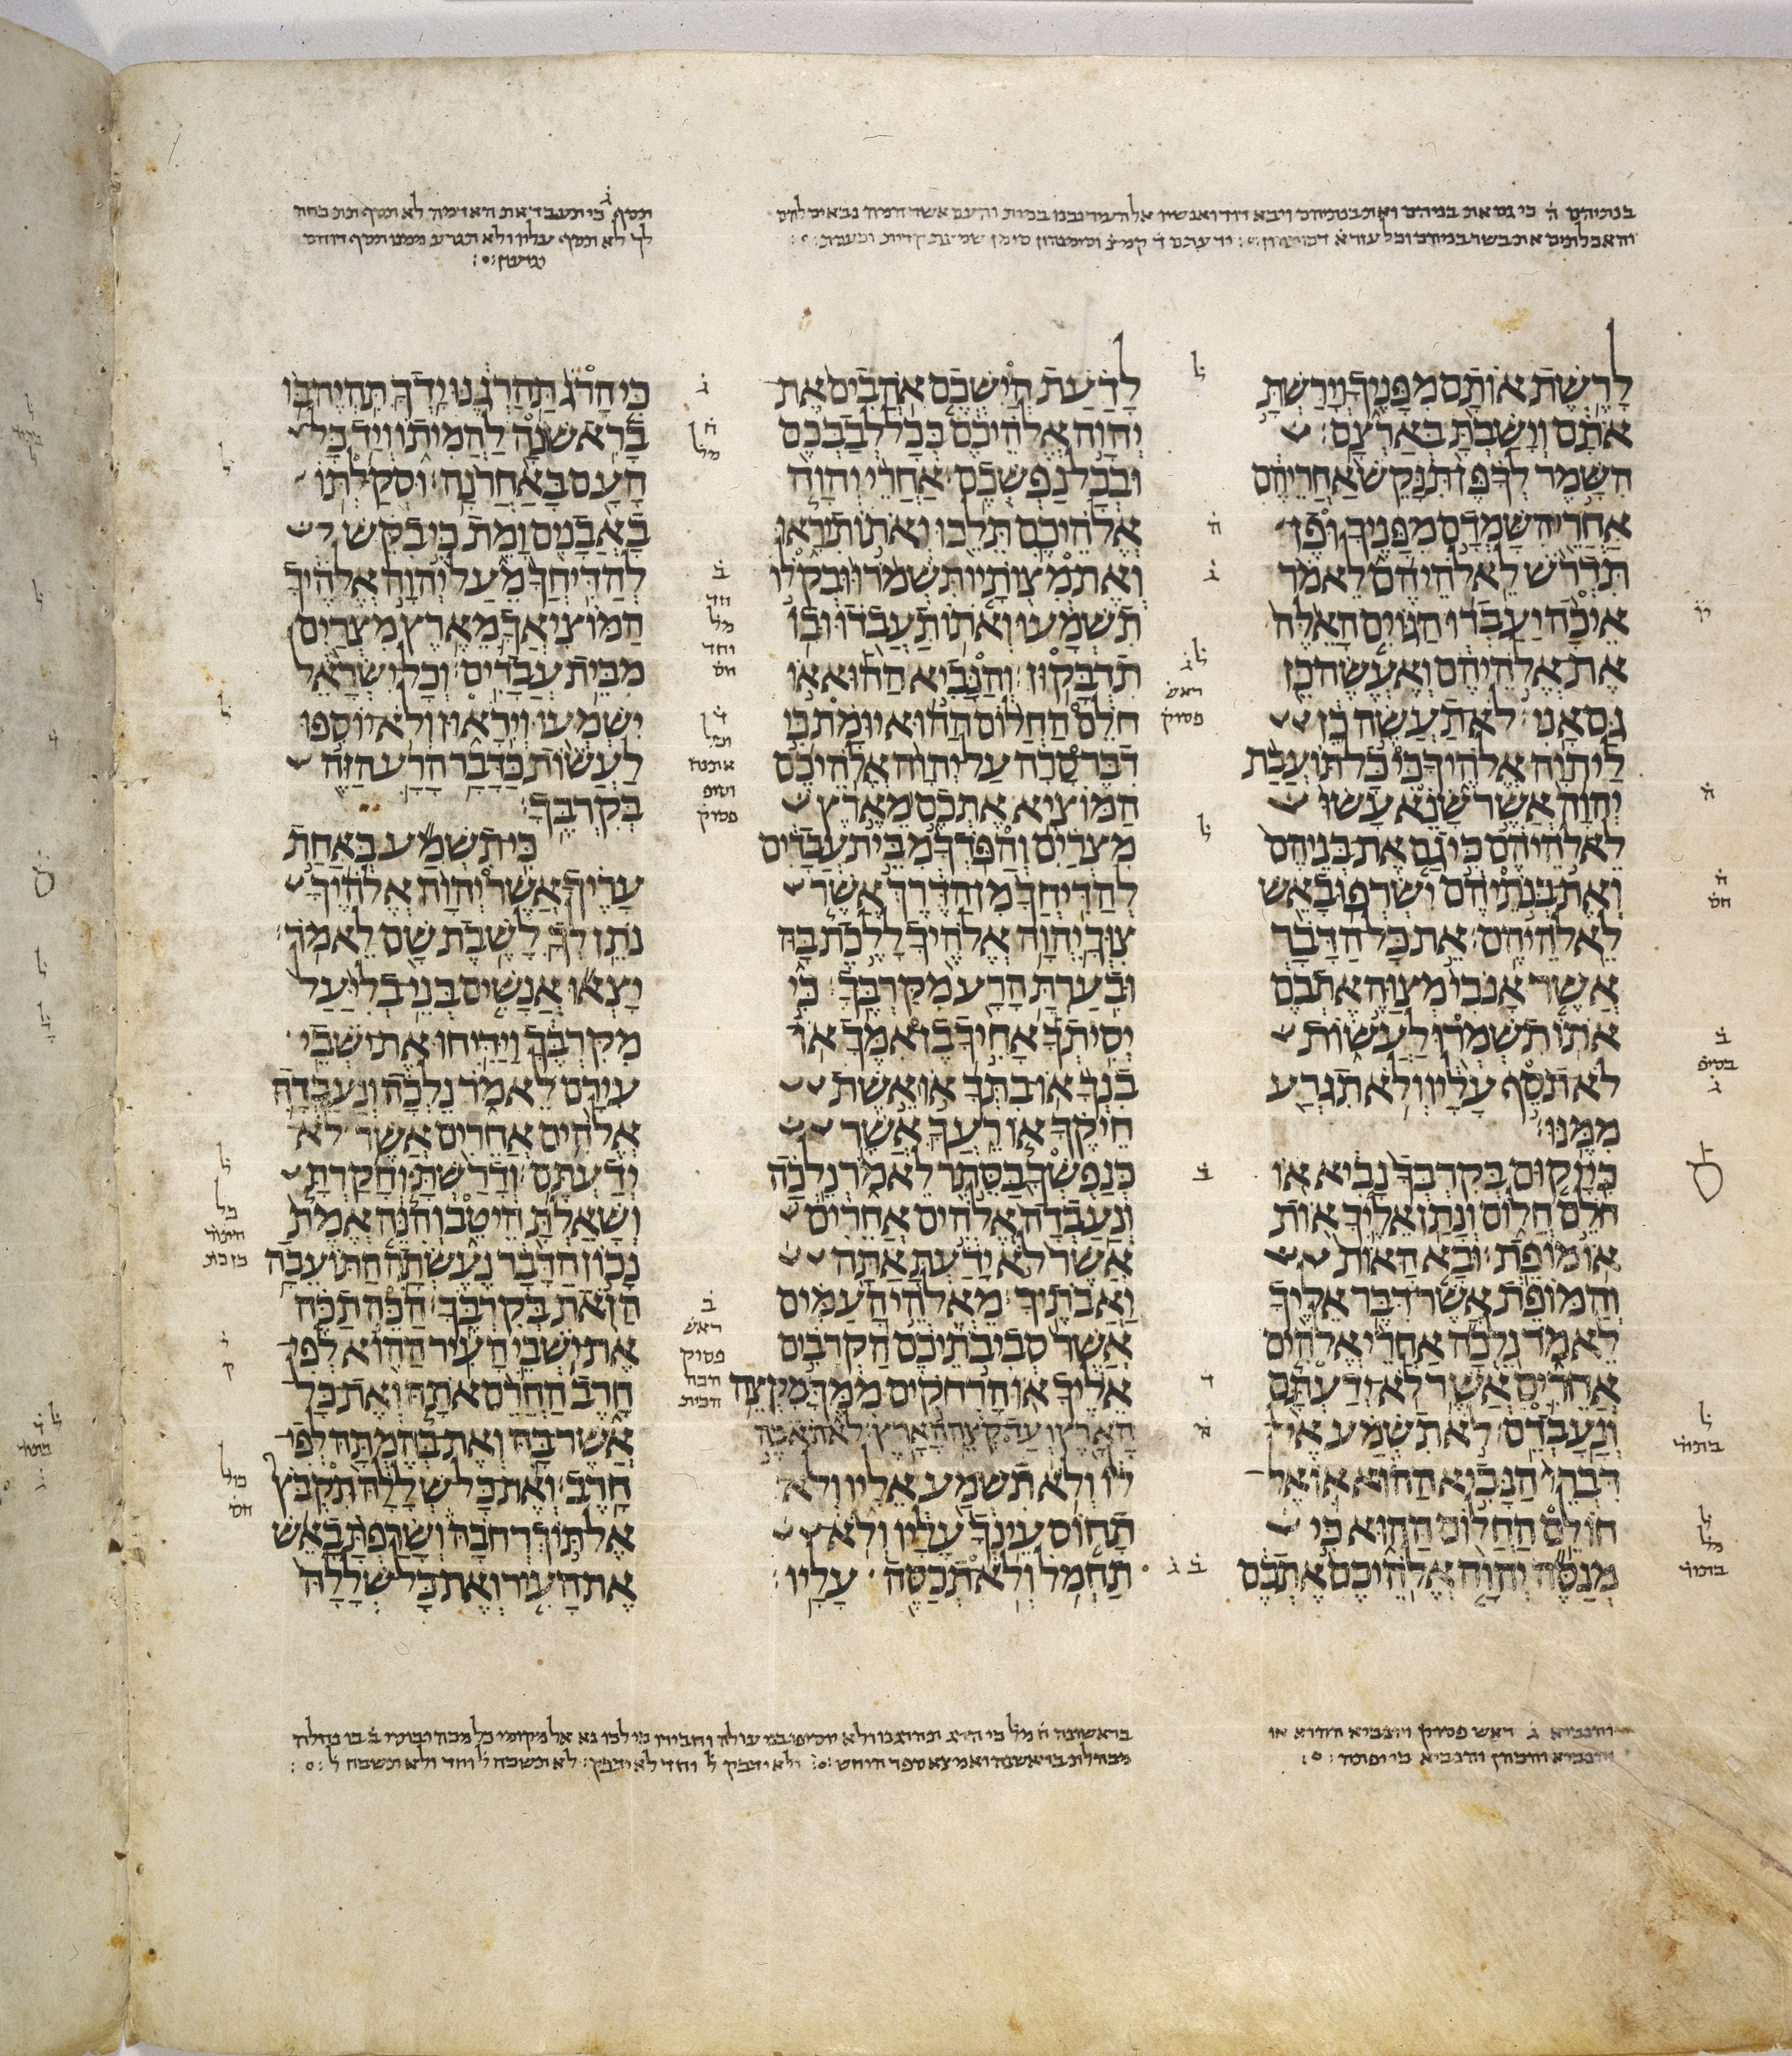 בנתיהם ה כי גם את בניהם ואת בנתיהם ויבא דוד ואנשיו אל העיר
והאכלתים את בשר בניהם וכל עזרא דכותהון
תסף ג כי תעבד את האדמה לא תסף תת כחה
לך לא תסף עליו ולא תגרע ממנו תסף רוחם
יגועון
לָרֶשֶׁת אוֹתָם מִפָּנֶיךָ וְיָרַשְׁתָּ
אֹתָם וְיָשַׁבְתָּ בְּאַרְצָם׃
הִשָּׁמֶר לְךָ פֶּן תִּנָּקֵשׁ אַחֲרֵיהֶם
אַחֲרֵי הִשָּׁמְדָם מִפָּנֶיךָ וּפֶן
תִּדְרֹשׁ לֵאלֹהֵיהֶם לֵאמֹר
אֵיכָה יַעַבְדוּ הַגּוֹיִם הָאֵלֶּה
אֶת אֱלֹהֵיהֶם וְאֶעֱשֶׂה כֵּן
גַּם אָנִי׃ לֹא תַעֲשֶׂה כֵן
לַיהוָה אֱלֹהֶיךָ כִּי כָל תּוֹעֲבַת
יְהוָה אֲשֶׁר שָׂנֵא עָשׂוּ
לֵאלֹהֵיהֶם כִּי גַם אֶת בְּנֵיהֶם
וְאֶת בְּנֹתֵיהֶם יִשְׂרְפוּ בָאֵשׁ
לֵאלֹהֵיהֶם׃ אֵת כָּל הַדָּבָר
אֲשֶׁר אָנֹכִי מְצַוֶּה אֶתְכֶם
אֹתוֹ תִשְׁמְרוּ לַעֲשׂוֹת
לֹא תֹסֵף עָלָיו וְלֹא תִגְרַע
מִמֶּנּוּ׃
כִּי יָקוּם בְּקִרְבְּךָ נָבִיא אוֹ
חֹלֵם חֲלוֹם וְנָתַן אֵלֶיךָ אוֹת
אוֹ מוֹפֵת׃ וּבָא הָאוֹת
וְהַמּוֹפֵת אֲשֶׁר דִּבֶּר אֵלֶיךָ
לֵאמֹר נֵלְכָה אַחֲרֵי אֱלֹהִים
אֲחֵרִים אֲשֶׁר לֹא יְדַעְתָּם
וְנָעָבְדֵם׃ לֹא תִשְׁמַע אֶל
דִּבְרֵי הַנָּבִיא הַהוּא אוֹ אֶל
חוֹלֵם הַחֲלוֹם הַהוּא כִּי
מְנַסֶּה יְהוָה אֱלֹהֵיכֶם אֶתְכֶם
לָדַעַת הֲיִשְׁכֶם אֹהֲבִים אֶת
יְהוָה אֱלֹהֵיכֶם בְּכָל לְבַבְכֶם
וּבְכָל נַפְשְׁכֶם׃ אַחֲרֵי יְהוָה
אֱלֹהֵיכֶם תֵּלֵכוּ וְאֹתוֹ תִירָאוּ
וְאֶת מִצְוֹתָיו תִּשְׁמֹרוּ וּבְקֹלוֹ
תִשְׁמָעוּ וְאֹתוֹ תַעֲבֹדוּ וּבוֹ
תִדְבָּקוּן׃ וְהַנָּבִיא הַהוּא אוֹ
חֹלֵם הַחֲלוֹם הַהוּא יוּמָת כִּי
דִבֶּר סָרָה עַל יְהוָה אֱלֹהֵיכֶם
הַמּוֹצִיא אֶתְכֶם מֵאֶרֶץ
מִצְרַיִם וְהַפֹּדְךָ מִבֵּית עֲבָדִים
לְהַדִּיחֲךָ מִן הַדֶּרֶךְ אֲשֶׁר
צִוְּךָ יְהוָה אֱלֹהֶיךָ לָלֶכֶת בָּהּ
וּבִעַרְתָּ הָרָע מִקִּרְבֶּךָ׃ כִּי
יְסִיתְךָ אָחִיךָ בֶן אִמֶּךָ אוֹ
בִנְךָ אוֹ בִתְּךָ אוֹ אֵשֶׁת
חֵיקֶךָ אוֹ רֵעֲךָ אֲשֶׁר
כְּנַפְשְׁךָ בַּסֵּתֶר לֵאמֹר נֵלְכָה
וְנַעַבְדָה אֱלֹהִים אֲחֵרִים
אֲשֶׁר לֹא יָדַעְתָּ אַתָּה
וַאֲבֹתֶיךָ׃ מֵאֱלֹהֵי הָעַמִּים
אֲשֶׁר סְבִיבֹתֵיכֶם הַקְּרֹבִים
אֵלֶיךָ אוֹ הָרְחֹקִים מִמֶּךָּ מִקְצֵה
הָאָרֶץ וְעַד קְצֵה הָאָרֶץ׃ לֹא תֹאבֶה
לוֹ וְלֹא תִשְׁמַע אֵלָיו וְלֹא
תָחוֹס עֵינְךָ עָלָיו וְלֹא
תַחְמֹל וְלֹא תְכַסֶּה עָלָיו׃
כִּי הָרֹג תַּהַרְגֶנּוּ יָדְךָ תִּהְיֶה בּוֹ
בָרִאשׁוֹנָה לַהֲמִיתוֹ וְיַד כָּל
הָעָם בָּאַחֲרֹנָה׃ וּסְקַלְתּוֹ
בָאֲבָנִים וָמֵת כִּי בִקֵּשׁ
לְהַדִּיחֲךָ מֵעַל יְהוָה אֱלֹהֶיךָ
הַמּוֹצִיאֲךָ מֵאֶרֶץ מִצְרַיִם
מִבֵּית עֲבָדִים׃ וְכָל יִשְׂרָאֵל
יִשְׁמְעוּ וְיִרָאוּן וְלֹא יוֹסִפוּ
לַעֲשׂוֹת כַּדָּבָר הָרָע הַזֶּה
בְּקִרְבֶּךָ׃
כִּי תִשְׁמַע בְּאַחַת
עָרֶיךָ אֲשֶׁר יְהוָה אֱלֹהֶיךָ
נֹתֵן לְךָ לָשֶׁבֶת שָׁם לֵאמֹר׃
יָצְאוּ אֲנָשִׁים בְּנֵי בְלִיַּעַל
מִקִּרְבֶּךָ וַיַּדִּיחוּ אֶת יֹשְׁבֵי
עִירָם לֵאמֹר נֵלְכָה וְנַעַבְדָה
אֱלֹהִים אֲחֵרִים אֲשֶׁר לֹא
יְדַעְתֶּם׃ וְדָרַשְׁתָּ וְחָקַרְתָּ
וְשָׁאַלְתָּ הֵיטֵב וְהִנֵּה אֱמֶת
נָכוֹן הַדָּבָר נֶעֶשְׂתָה הַתּוֹעֵבָה
הַזֹּאת בְּקִרְבֶּךָ׃ הַכֵּה תַכֶּה
אֶת יֹשְׁבֵי הָעִיר הַהִוא לְפִי
חָרֶב הַחֲרֵם אֹתָהּ וְאֶת כָּל
אֲשֶׁר בָּהּ וְאֶת בְּהֶמְתָּהּ לְפִי
חָרֶב׃ וְאֶת כָּל שְׁלָלָהּ תִּקְבֹּץ
אֶל תּוֹךְ רְחֹבָהּ וְשָׂרַפְתָּ בָאֵשׁ
אֶת הָעִיר וְאֶת כָּל שְׁלָלָהּ
והנביא ג ראש פסוק והנביא ההוא או
והנביא והכהן והנביא כי יפותה
בראשונה ה מל כי הרג תהרגנו ולא יוסיפו בני עולה